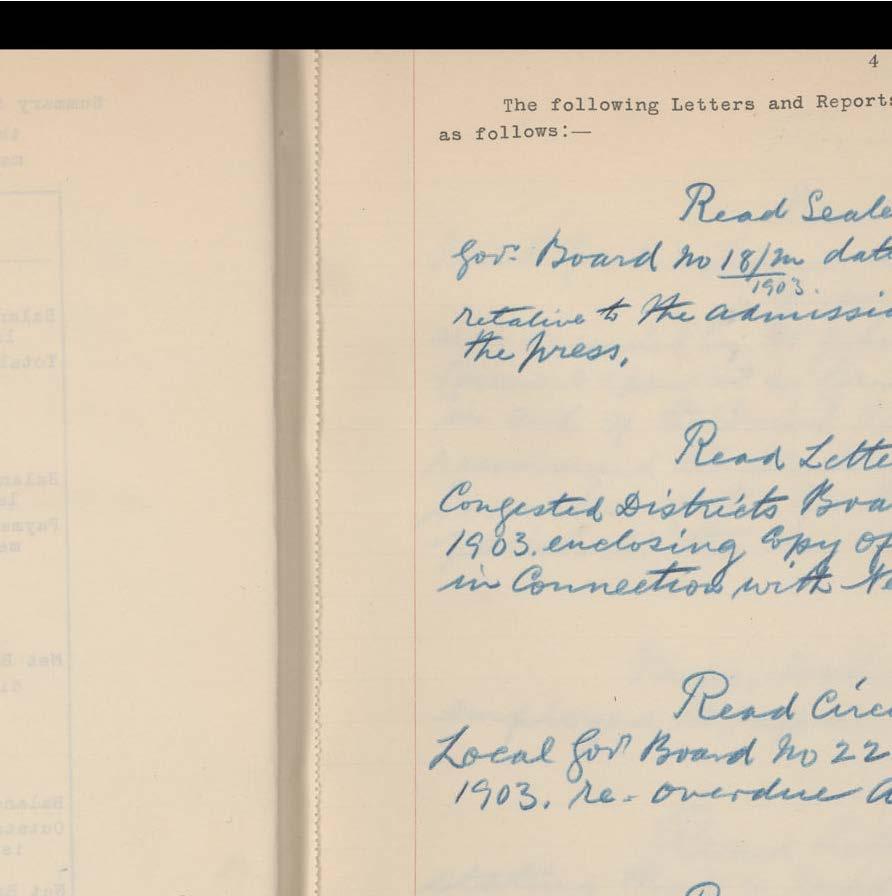 4
The following Letters and Reports
as follows:—
Read Seale
Govt Board No 18/m date
1903.
retalive to the admissio
the press.
Read Lette
Congested Districts Boa
1903. enclosing Copy of
in Connection with Ne
Read Circu
Local Govt Board No 22
1903. re- overdue a